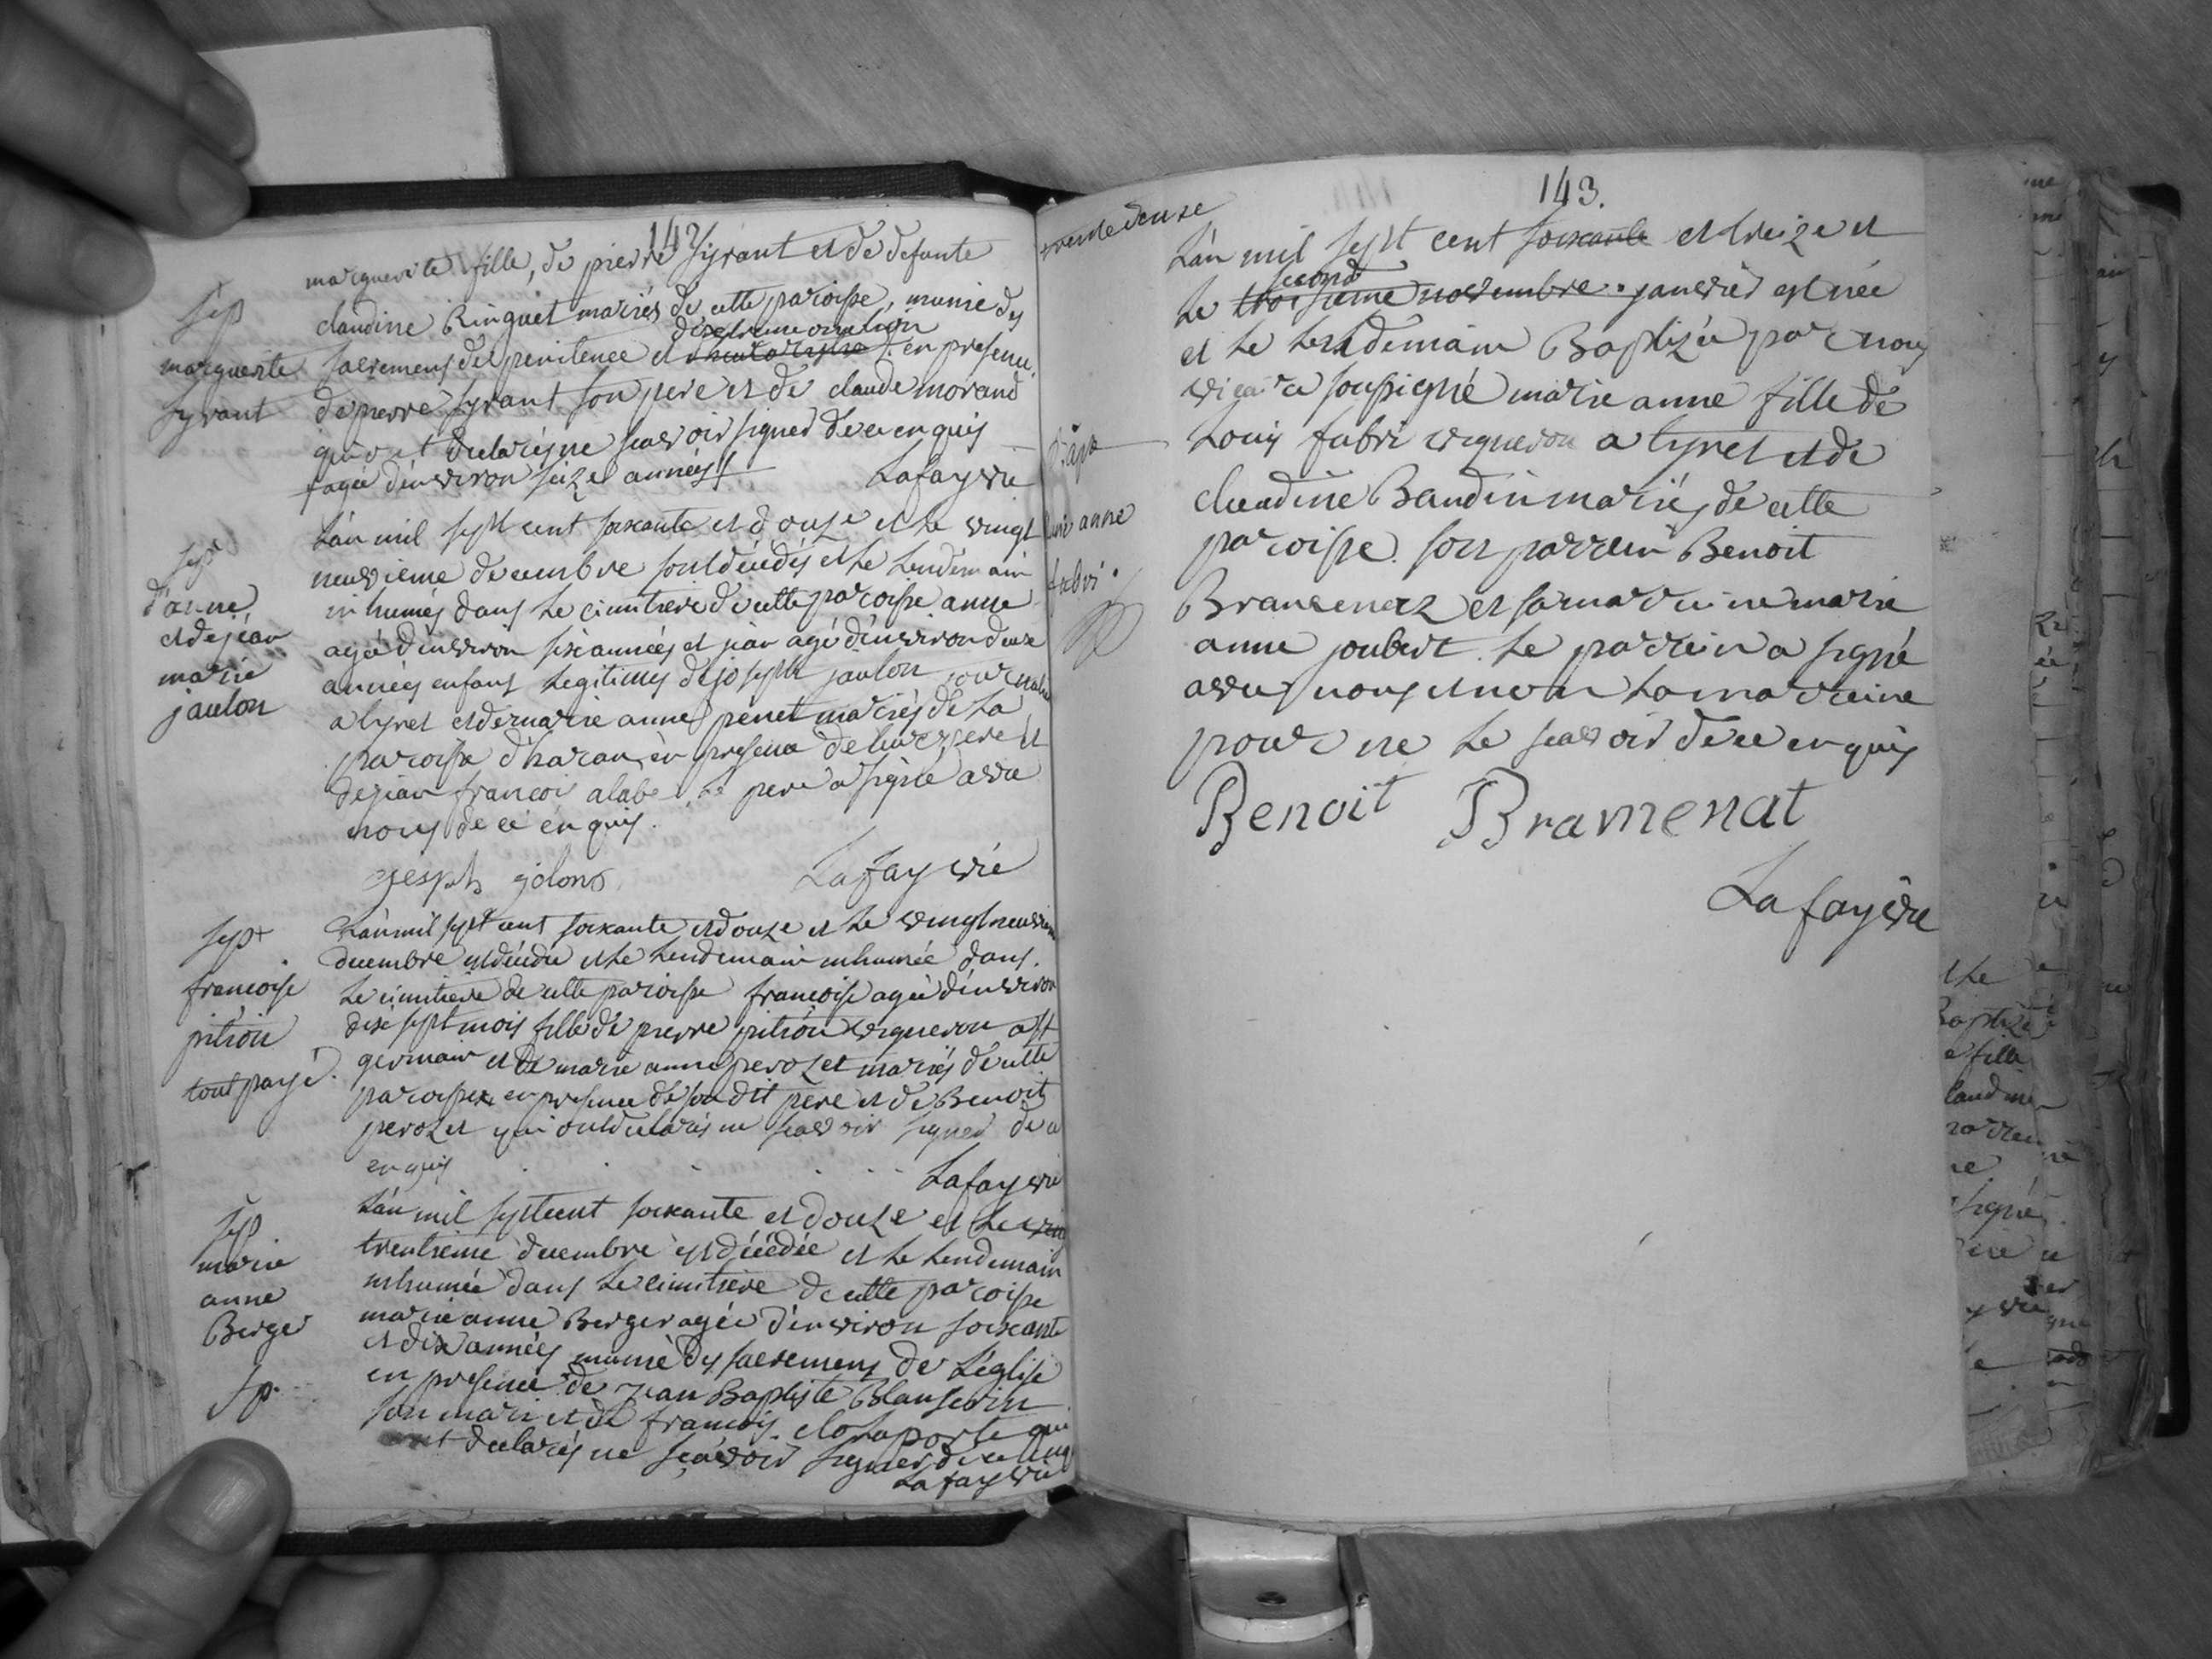 142
marguerite fille, de pierre syrant et de defunte
claudine Ringuet mariés de cette paroisse, munie des
d'extreme onction
sacremens de penitence et en presence
de pierre syrant son pere et de claude morand
qui ont declarés ne scavoir signer de ce enquis
agée d'environ seize années
Lafay vic
sep
marguerite
syrant
L'an mil sept cent soixante et douze et le vingt
neuvieme decembre sont décédés et le lendemain
inhumés dans le cimitiere de cette paroisse anne
agée d'environ six années et jean agé d'environ deux
années enfans legitimes de joseph jaulon journalier
a lyret et de marie anne penet mariés de la
paroisse d'haran, en presence de leur pere et
de jean francois père a signé avec
nous de ce enquis.
jesph jolons
Lafay vic
sep
d'anne
et de jéan
marie
jaulon
L'an mil sept cent soixante et douze et le vingt neuvieme
decembre est décédée et le lendemain inhumée dans
le cimitiere de cette paroisse francoise agée d'environ
dix sept mois fille de pierre pitiön vigneron a st
germain et de marie anne perozet mariés de cette
paroisse en presence de son dit pere et de Benoit
perozet qui ont declarés ne scavoir signer de ce
enquis
Lafay vic
sep
francoise
pitiön
tout payé.
L'an mil sept cent soixante et douze et le
trentieme decembre est décédée et le lendemain
inhumée dans le cimitiere de cette paroisse
marie anne Berger agée d'environ soixante
et dix années munie des sacremens de L'église
en presence de jean Baptiste Blanserin
son mari et de francois delaporte qui
ont declarés ne scavoir signer de ce enq
Lafay vic
sep
marie
anne
Berger
Sp.
143.
L'an mil sept cent soixante et treize et
second
Le troisieme novembre janvier est née
et le lendemain Baptizée par nous
vicaire soussigné marie anne fille de
Louis fabri vigneron a lyret et de
claudine Baudin mariés de cette
paroisse. son parrein Benoit
Bramenaz et sa marreine marie
anne joubert. le parrein a signé
avec nous et non la marreine
pour ne le scavoir de ce enquis
Benoit Bramenat
Lafay vic
anne
fabri